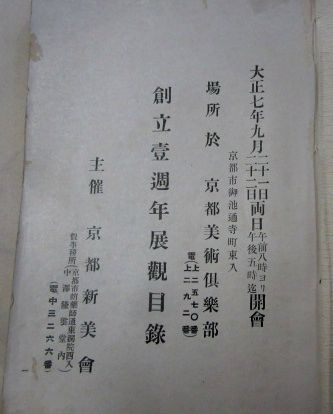 大正七年九月二十一日二十二日両日午前八時ヨリ午後五時迄開會
京都市御池通寺町東入
場所於京都美術俱樂部
電上二五七〇番
上二九二番
創立壹週年展觀目錄
主催京都新美會
假事務所京都市蛸藥師通東洞院西入
中澤隆雲堂内
電中三二六六番